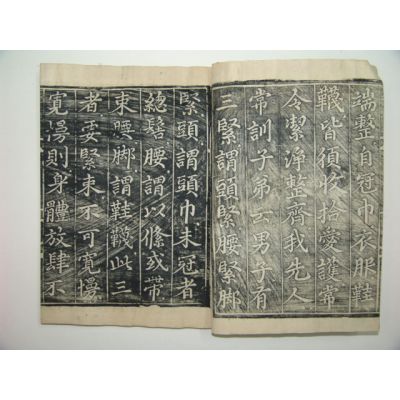 端整自冠巾衣服鞋
韈皆須收拾愛護常
令潔淨整齊我先人
常訓子弟云男子有
三緊謂頭緊腰緊脚
緊頭謂頭巾未冠者
總髻腰謂以絛或帶
束腰脚謂鞋韈此三
者要緊束不可寬慢
寬慢則身體放肆不